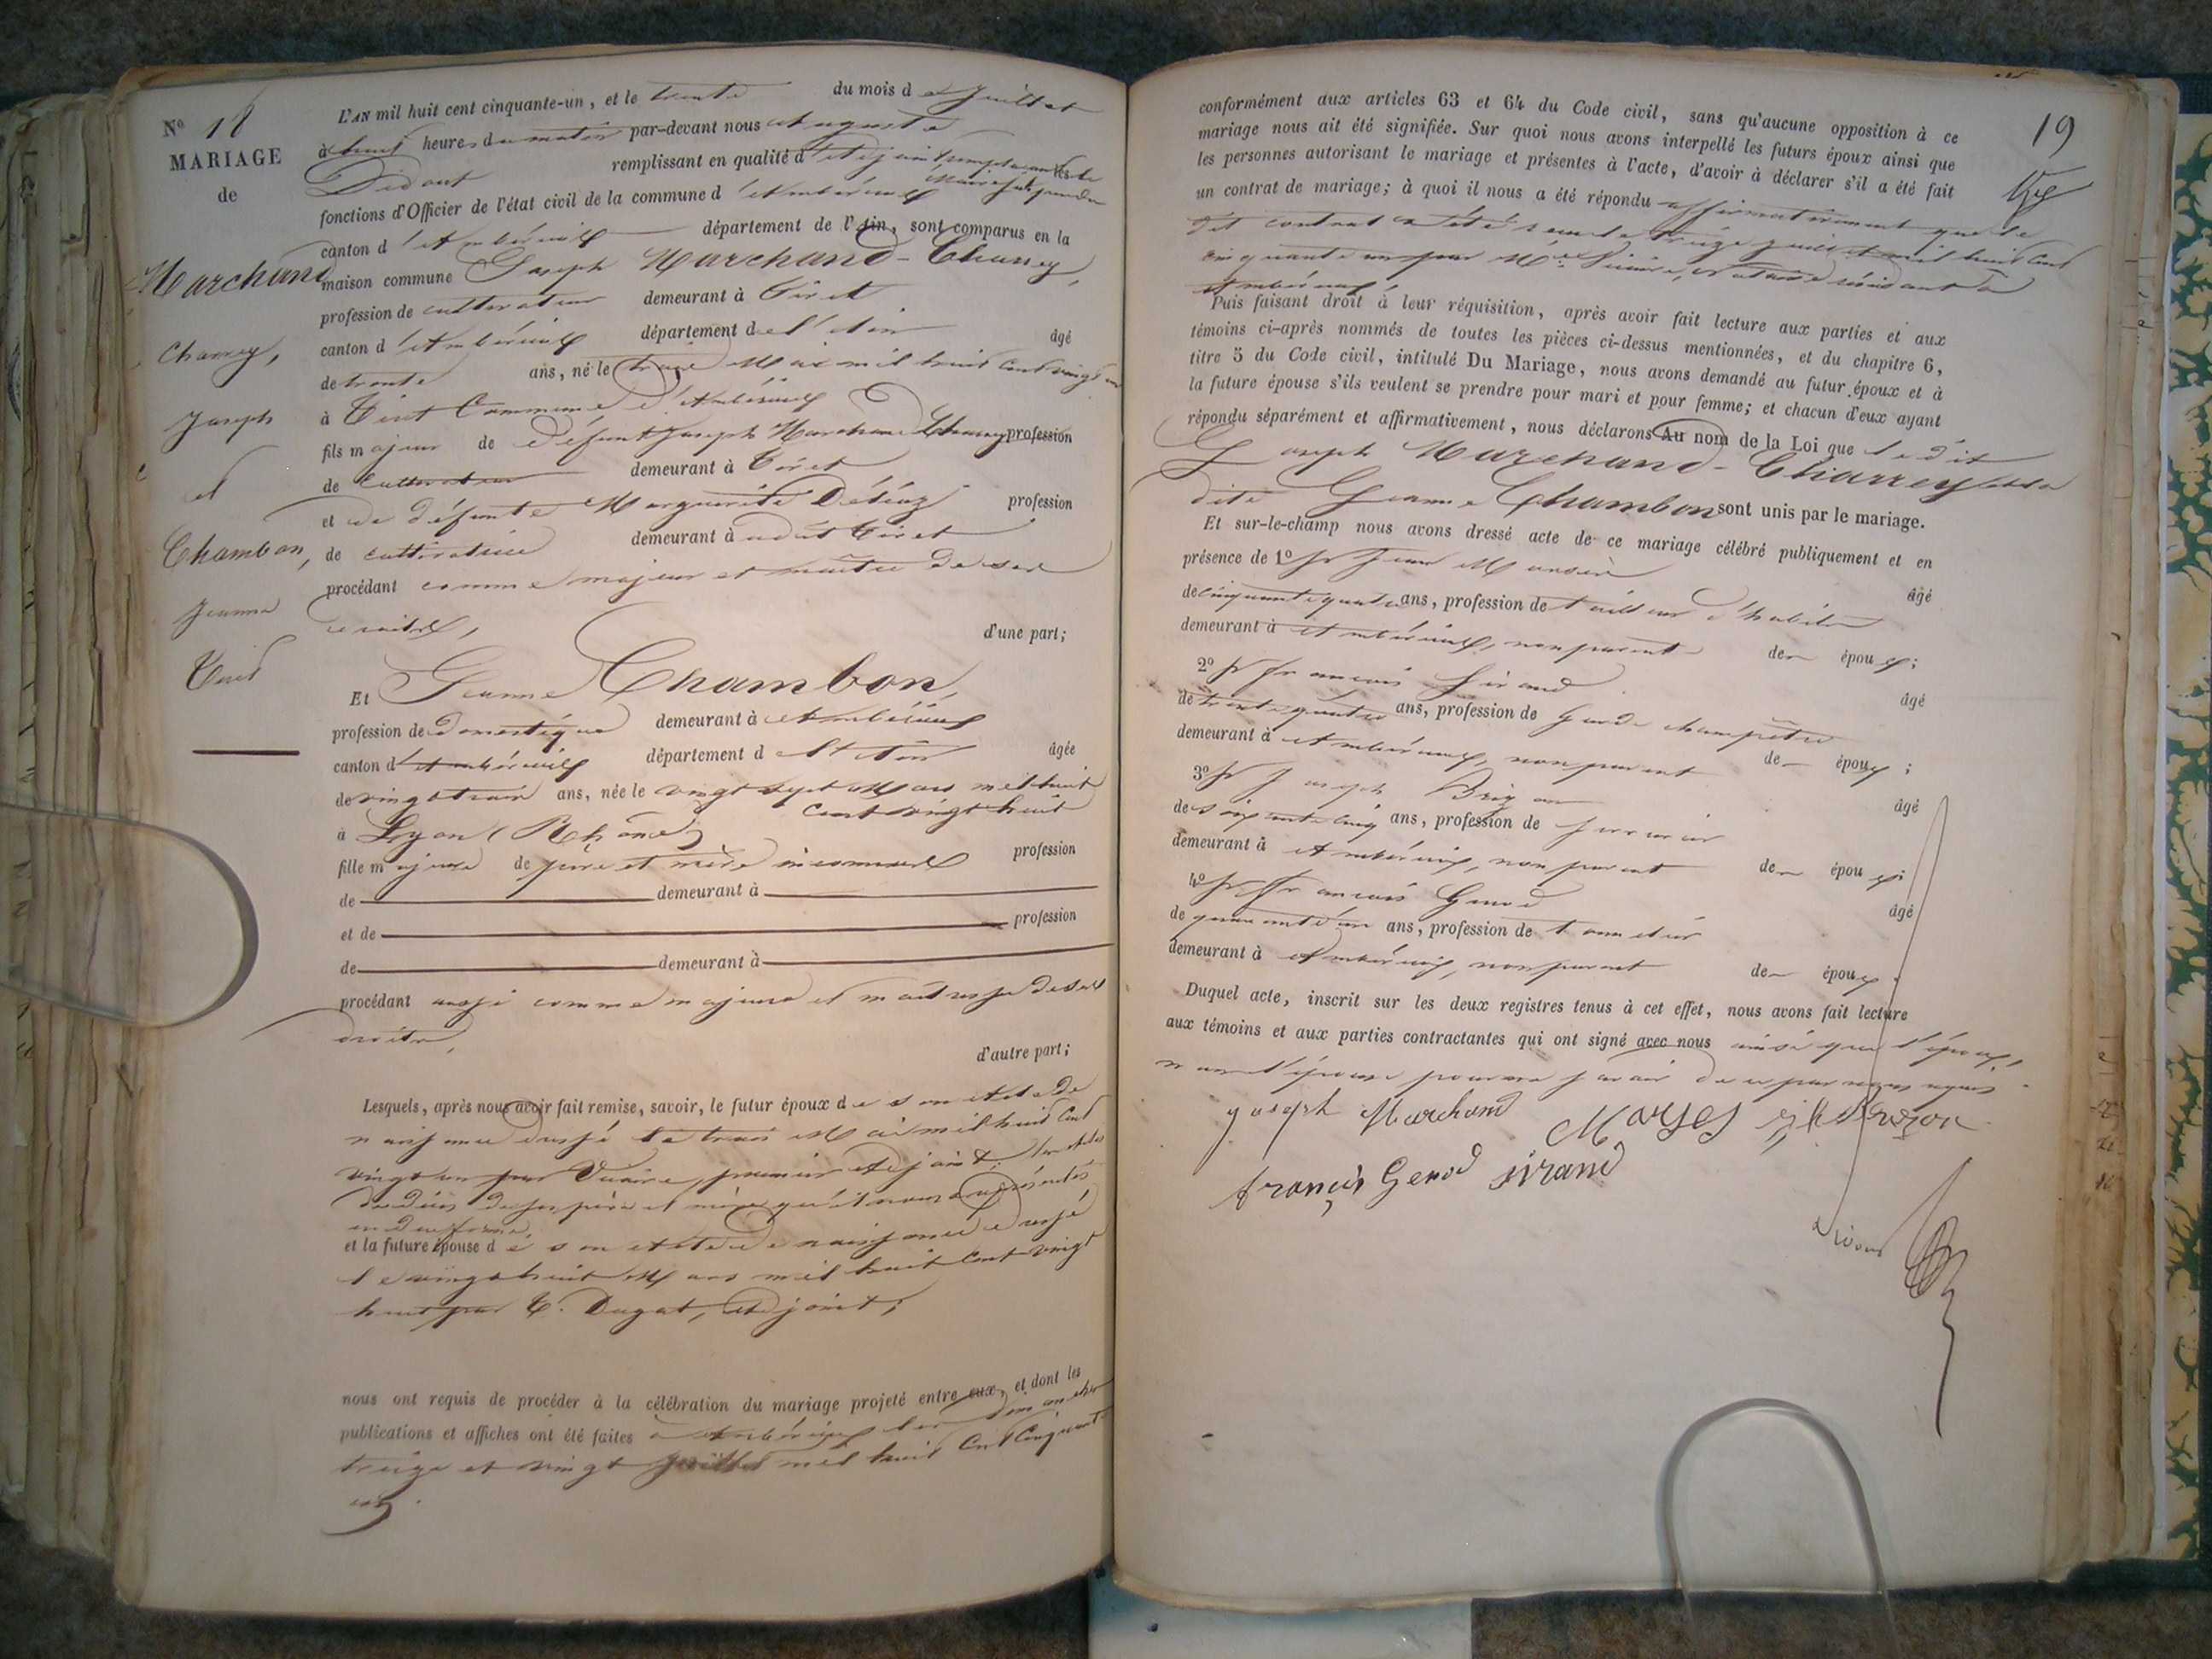 N.º 18
MARIAGE
de
Marchand
Charrey,
Joseph
et
Chambon,
Jeanne
L'AN mil huit cent cinquante-un, et le trente du mois de Juillet
à huit heures du matin par-devant nous Auguste
Didout remplissant en qualité d'Adjoint remplaçant le Maire les
fonctions d'Officier de l'état civil de la commune d'Ambérieux
canton d'Ambérieux département de l'Ain, sont comparus en la
maison commune Joseph Marchand-Charrey,
profession de cultivateur demeurant à Tiret
canton d'Ambérieux département de l'Ain âgé
de trente ans, né le trois Mai mil huit cent vingt un
à Tiret Commune d'Ambérieux
fils majeur de défunt Joseph Marchand Charrey profession
de cultivateur demeurant à Tiret
et de défunte Marguerite profession
de cultivatrice demeurant à Tiret
procédant comme majeur et maître de ses
droits, d'une part;
Et Jeanne Chambon,
profession de domestique demeurant à Ambérieux
canton d'Ambérieux département de l'Ain âgée
de vingt trois ans, née le vingt sept Mars mil huit
cent vingt huit
à Lyon (Rhône)
fille majeure de père et mère inconnus profession
de demeurant à
et de profession
de demeurant à
procédant aussi comme majeure et maîtresse de ses
droits, d'autre part;
Lesquels, après nous avoir fait remise, savoir, le futur époux de son Acte de
naissance dressé le trois Mai mil huit cent
vingt un par premier Adjoint, les actes
de décès de ses père et mère qu'il nous a représentés
en due forme,
et la future épouse de son Acte de naissance dressé
le vingt huit Mars mil huit cent vingt
huit par Dugat, Adjoint;
nous ont requis de procéder à la célébration du mariage projeté entre eux, et dont les
publications et affiches ont été faites à Ambérieux les dimanches
treize et vingt Juillet mil huit cent cinquante
un.
19
conformément aux articles 63 et 64 du Code civil, sans qu'aucune opposition à ce
mariage nous ait été signifiée. Sur quoi nous avons interpellé les futurs époux ainsi que
les personnes autorisant le mariage et présentes à l'acte, d'avoir à déclarer s'il a été fait
un contrat de mariage; à quoi il nous a été répondu affirmativement que le
dit contrat a été reçu le treize juillet mil huit cent
cinquante un par Me notaire résidant à
Ambérieux.
Puis faisant droit à leur réquisition, après avoir fait lecture aux parties et aux
témoins ci-après nommés de toutes les pièces ci-dessus mentionnées, et du chapitre 6,
titre 5 du Code civil, intitulé Du Mariage, nous avons demandé au futur époux et à
la future épouse s'ils veulent se prendre pour mari et pour femme; et chacun d'eux ayant
répondu séparément et affirmativement, nous déclarons Au nom de la Loi que le dit
Joseph Marchand-Charrey et la
dite Jeanne Chambon sont unis par le mariage.
Et sur-le-champ nous avons dressé acte de ce mariage célébré publiquement et en
présence de 1º Sr Jean âgé
de cinquante quatre ans, profession de tailleur d'habits
demeurant à Ambérieux, non parent des époux;
2º Sr François Sirand âgé
de trente quatre ans, profession de Garde champêtre
demeurant à Ambérieux, non parent des époux;
3º Sr Joseph Brizon âgé
de soixante cinq ans, profession de serrurier
demeurant à Ambérieux, non parent des époux;
4º Sr François Genod âgé
de quarante un ans, profession de tonnelier
demeurant à Ambérieux, non parent des époux.
Duquel acte, inscrit sur les deux registres tenus à cet effet, nous avons fait lecture
aux témoins et aux parties contractantes qui ont signé avec nous ainsi que l'époux,
non l'épouse pour ne savoir de ce par nous requis.
joseph Marchand
françois Genod sirand